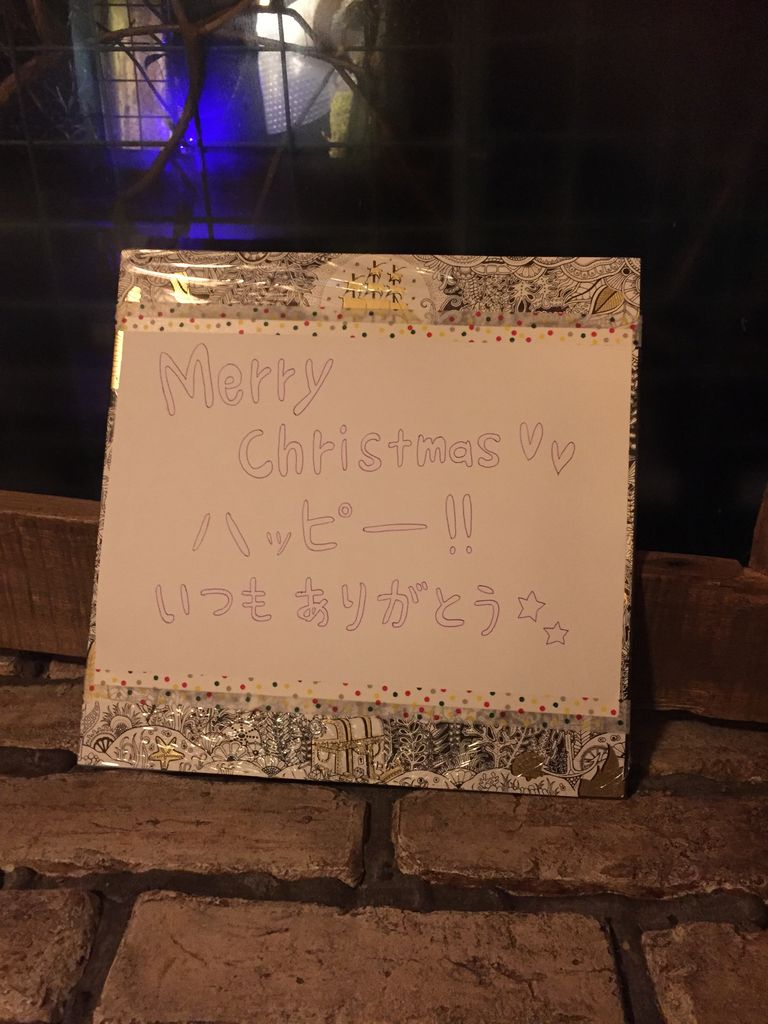 Merry
Christmas♡♡
ハッピー!!
いつもありがとう☆☆